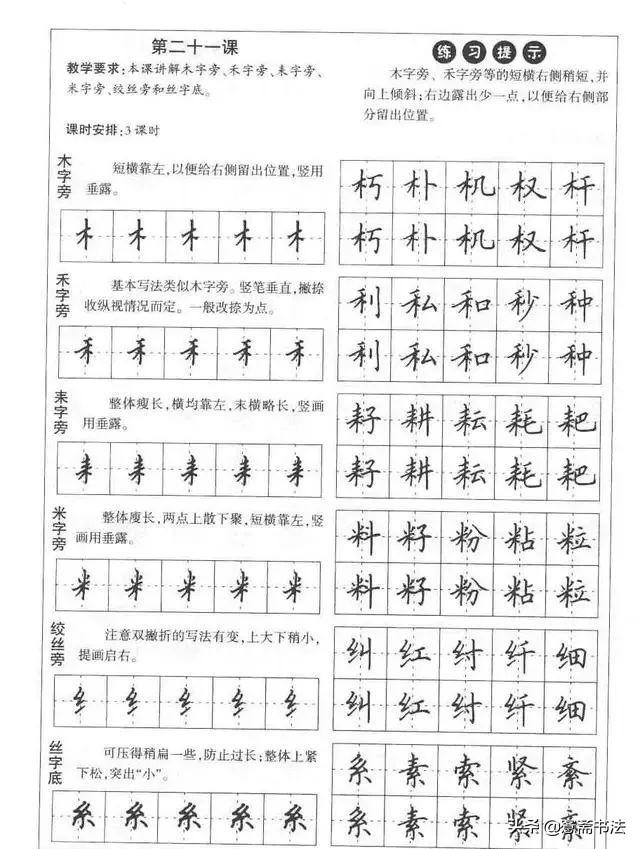 第二十一课
教学要求:本课讲解木字旁、禾字旁、耒字旁、
米字旁、绞丝旁和丝字底。
课时安排:3课时
练习提示
木字旁、禾字旁等的短横右侧稍短,并
向上倾斜;右边露出少一点,以便给右侧部
分留出位置。
木字旁
短横靠左,以便给右侧留出位置,竖用
垂露。
木 木 木 木 木
朽 朴 机 权 杆
朽 朴 机 权 杆
禾字旁
基本写法类似木字旁。竖笔垂直,撇捺
收纵视情况而定。一般改捺为点。
禾 禾 禾 禾 禾
利 私 和 秒 种
利 私 和 秒 种
耒字旁
整体瘦长,横均靠左,末横略长,竖画
用垂露。
耒 耒 耒 耒 耒
耔 耕 耘 耗 耙
耔 耕 耘 耗 耙
米字旁
整体廋长,两点上散下聚,短横靠左,竖
画用垂露。
米 米 米 米 米
料 籽 粉 粘 粒
料 籽 粉 粘 粒
绞丝旁
注意双撇折的写法有变,上大下稍小,
提画启右。
纟 纟 纟 纟 纟
纠 红 纣 纤 细
纠 红 纣 纤 细
丝字底
可压得稍扁一些,防止过长;整体上紧
下松,突出“小”。
糸 糸 糸 糸 糸
糸 素 索 紧 紊
糸 素 索 紧 紊
头条@斋书法